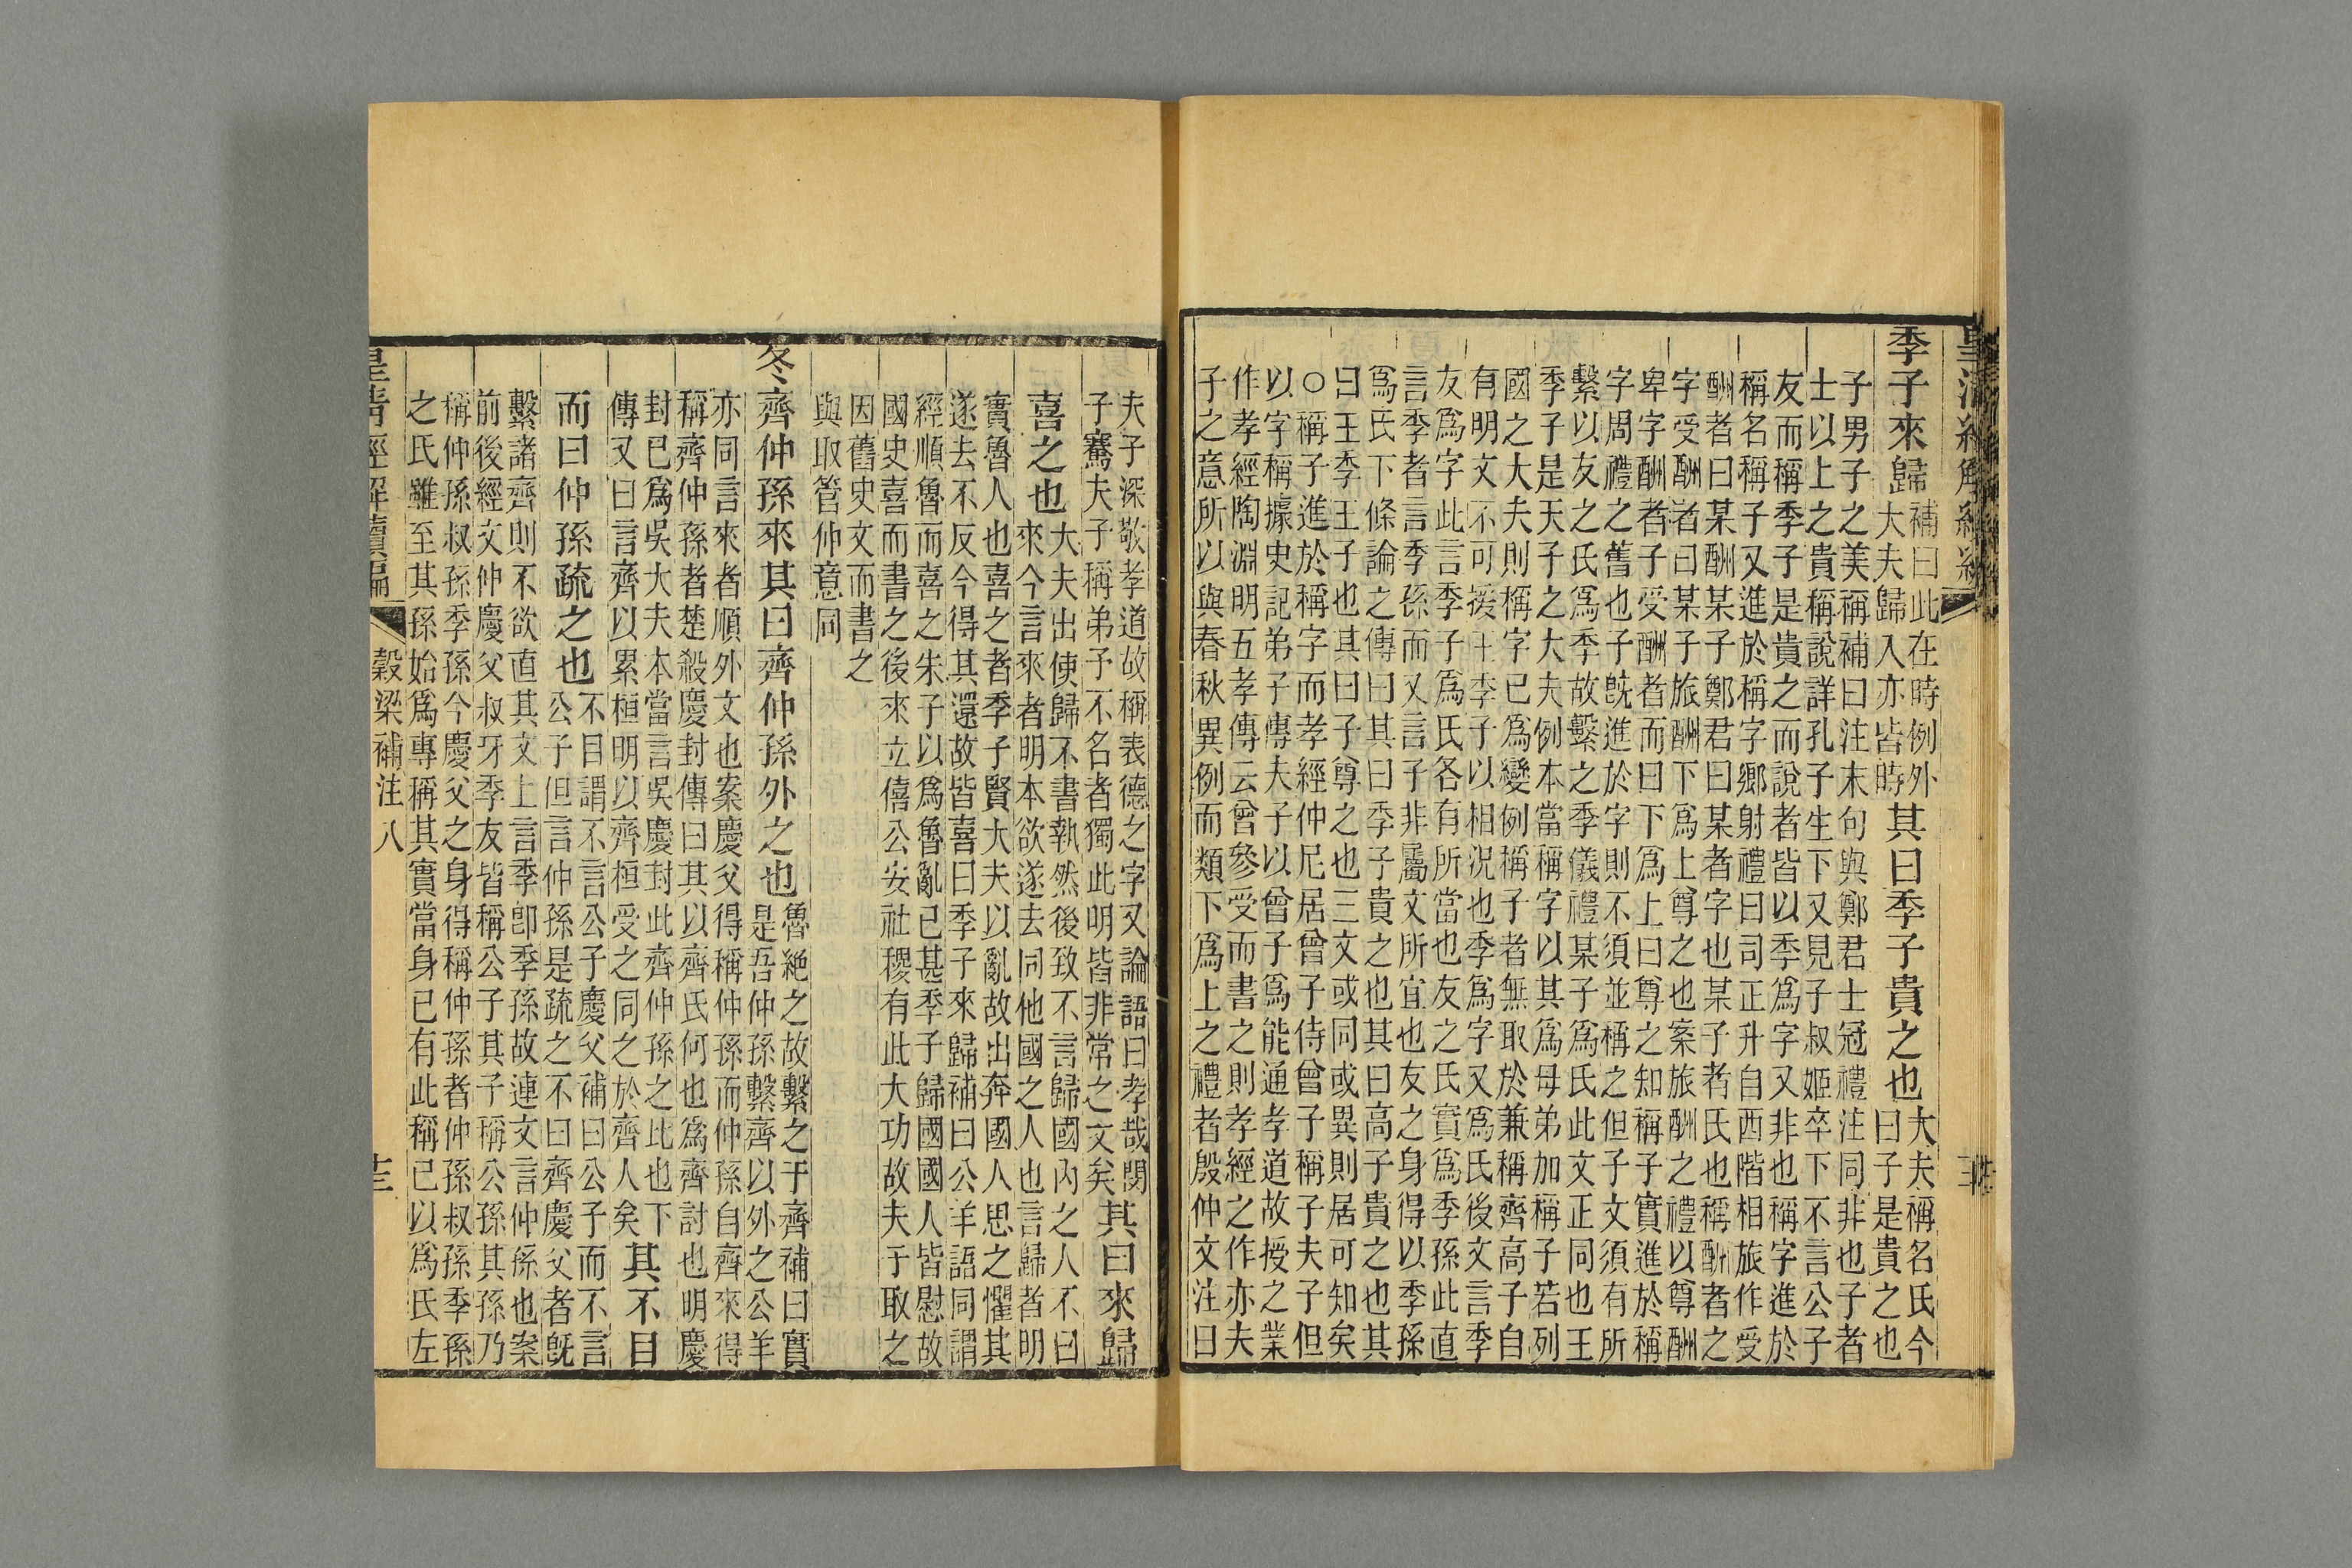 季子來歸
補曰此在時例外
大夫歸入亦皆時
其曰季子貴之也
大夫稱名氏今
曰子是貴之也
子男子之美稱補曰注末句與鄭君士冠禮注同非也子者
士以上之貴稱說詳孔子生下又見子叔姬卒下不言公子
友而稱季子是貴之而說者皆以季爲字又非也稱字進於
稱名稱子又進於稱字鄉射禮曰司正升自西階相旅作受
酬者曰某酬某子鄭君曰某者字也某子者氏也稱酬者之
字受酬者曰某子旅酬下爲上尊之也案旅酬之禮以尊酬
卑字酬者子受酬者而曰下爲上曰尊之知稱子實進於稱
字周禮之舊也子旣進於字則不須並稱之但子文須有所
繫以友之氏爲季故繫之季儀禮某子爲氏此文正同也王
季子是天子之大夫例本當稱字以其爲母弟加稱子若列
國之大夫則稱字已爲變例稱子者無取於兼稱齊高子自
有明文不可援王季子以相況也季爲字又爲氏後文言季
友爲字此言季子爲氏各有所當也友之氏實爲季孫此直
言季者言季孫而又言子非屬文所宜也友之身得以季孫
爲氏下條論之傳曰其曰季子貴之也其曰高子貴之也其
曰王季王子也其曰子尊之也三文或同或異則居可知矣
○稱子進於稱字而孝經仲尼居曾子侍曾子稱子夫子但
以字稱據史記弟子傳夫子以曾子爲能通孝道故授之業
作孝經陶淵明五孝傳云曾參受而書之則孝經之作亦夫
子之意所以與春秋異例而類下爲上之禮者殷仲文注曰
夫子深敬孝道故稱表德之字又論語曰孝哉閔
子騫夫子稱弟子不名者獨此明皆非常之文矣
其曰來歸
喜之也
大夫出使歸不書執然後致不言歸國內之人不曰
來今言來者明本欲遂去同他國之人也言歸者明
實魯人也喜之者季子賢大夫以亂故出奔國人思之懼其
遂去不反今得其還故皆喜曰季子來歸補曰公羊語同謂
經順魯而喜之朱子以爲魯亂已甚季子歸國國人皆慰故
國史喜而書之後來立僖公安社稷有此大功故夫于取之
因舊史文而書之
與取管仲意同
冬齊仲孫來其曰齊仲孫外之也
魯絶之故繫之于齊補曰實
是吾仲孫繫齊以外之公羊
亦同言來者順外文也案慶父得稱仲孫而仲孫自齊來得
稱齊仲孫者楚殺慶封傳曰其以齊氏何也爲齊討也明慶
封已爲吳大夫本當言吳慶封此齊仲孫之比也下
傳又曰言齊以累桓明以齊桓受之同之於齊人矣
其不目
而曰仲孫疏之也
不目謂不言公子慶父補曰公子而不言
公子但言仲孫是疏之不曰齊慶父者旣
繫諸齊則不欲直其文上言季卽季孫故連文言仲孫也案
前後經文仲慶父叔牙季友皆稱公子其子稱公孫其孫乃
稱仲孫叔孫季孫今慶父之身得稱仲孫者仲孫叔孫季孫
之氏雖至其孫始爲專稱其實當身已有此稱已以爲氏左
皇清經解續編 穀梁補注八 十三